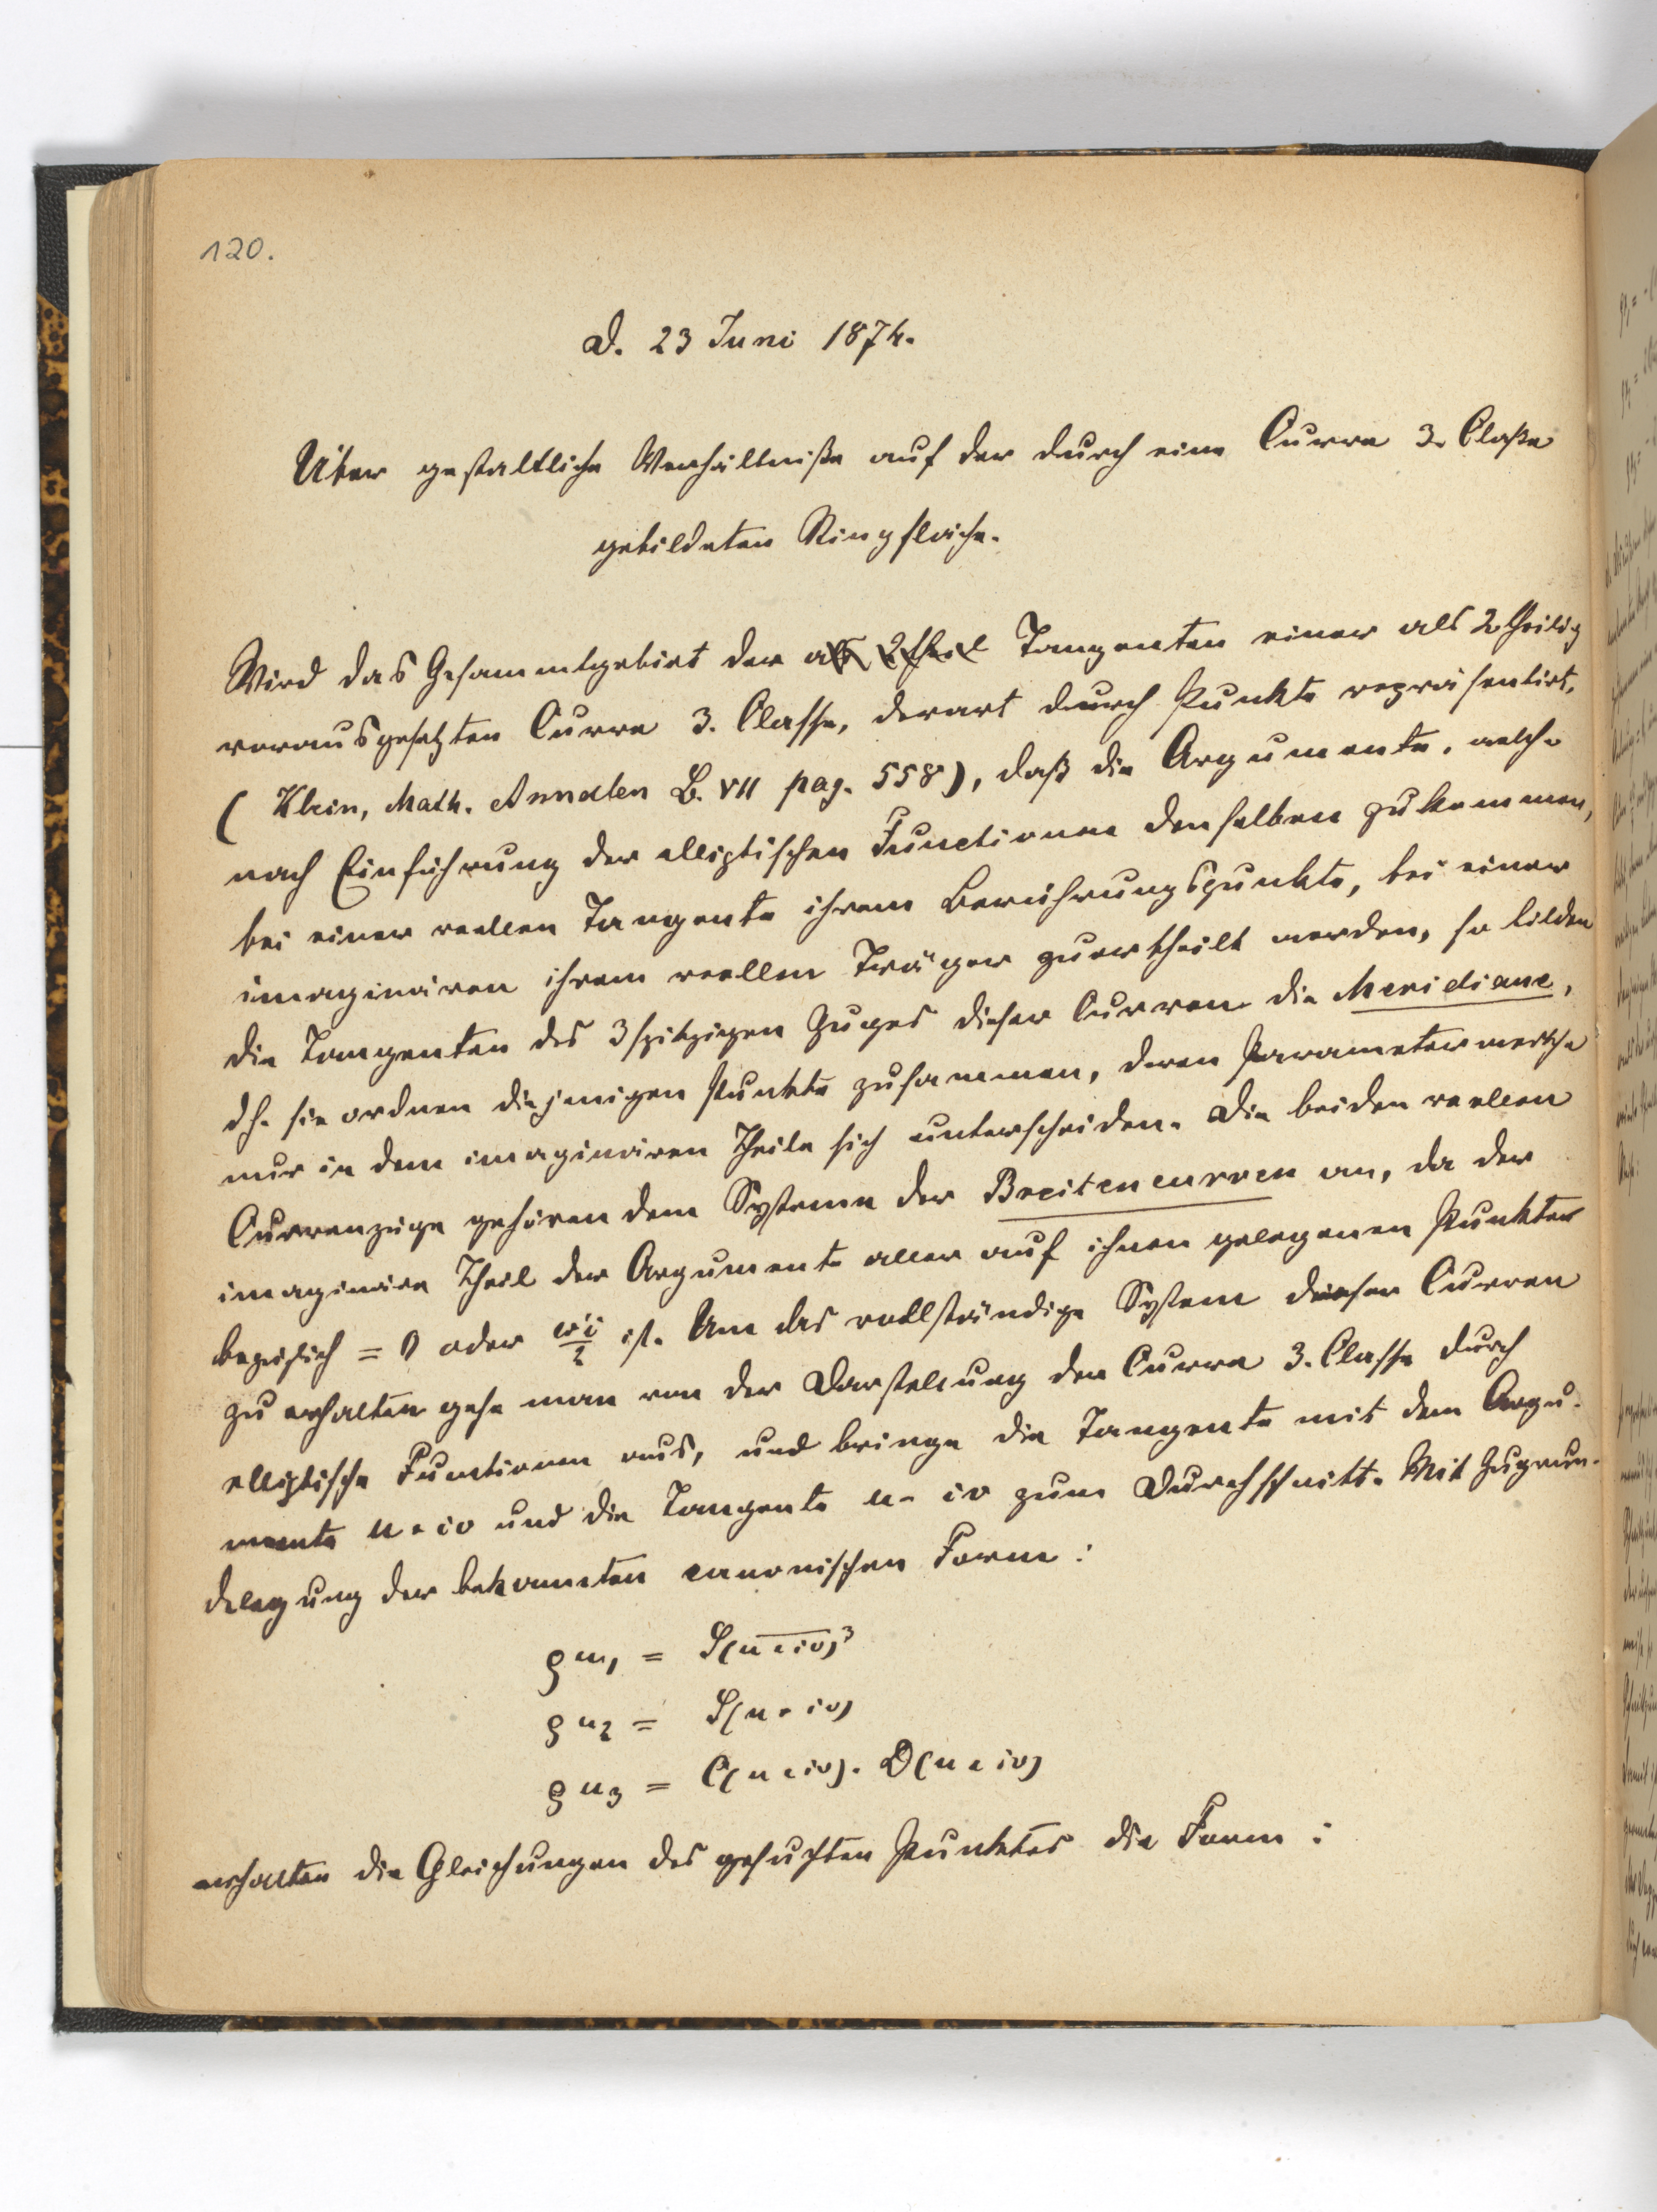 120.
D. 23 Juni 1874.
Über gestaltliche Verhältniße auf der durch eine Curve 3. Claße
gebildeten Ringfläche.
Wird das Gesammtgebiet der als 2theil Tangenten einer als 2theilig
vorausgesetzten Curve 3. Classe, derart durch Punkte repräsentirt,
(Klein, Math. Annalen B. VII pag. 558), daß die Argumente, welche
nach Einführung der elliptischen Functionen denselben zukommen,
bei einer reellen Tangente ihrem Berührungspunkte, bei einer
imaginären ihrem reellen Träger zuertheilt werden, so bilden
die Tangenten des 3spitzigen Zuges dieser Curven die Meridiane,
dh. sie ordnen diejenigen Punkte zusammen, deren Parameterwerthe
nur in dem imaginären Theile sich unterscheiden. Die beiden reellen
Curvenzüge gehören dem Systeme der Breitencurven an, da der
imaginäre Theil der Argumente aller auf ihnen gelegenen Punkte
bezüglich = 0 oder ω'i/2 ist. Um das vollständige System dieser Curven
zu erhalten gehe man von der Darstellung der Curve 3. Classe durch
elliptische Functionen aus, und bringe die Tangente mit dem Argu-
mente u+iv und die Tangente u-iv zum Durchschnitt. Mit Zugrun-
delegung der bekannten canonischen Form:
ϱu₁ = S(u+iv)³
ϱu₂ = S(u+iv)
ϱu₃ = C(u+iv). D(u+iv)
erhalten die Gleichungen des gesuchten Punktes die Form: